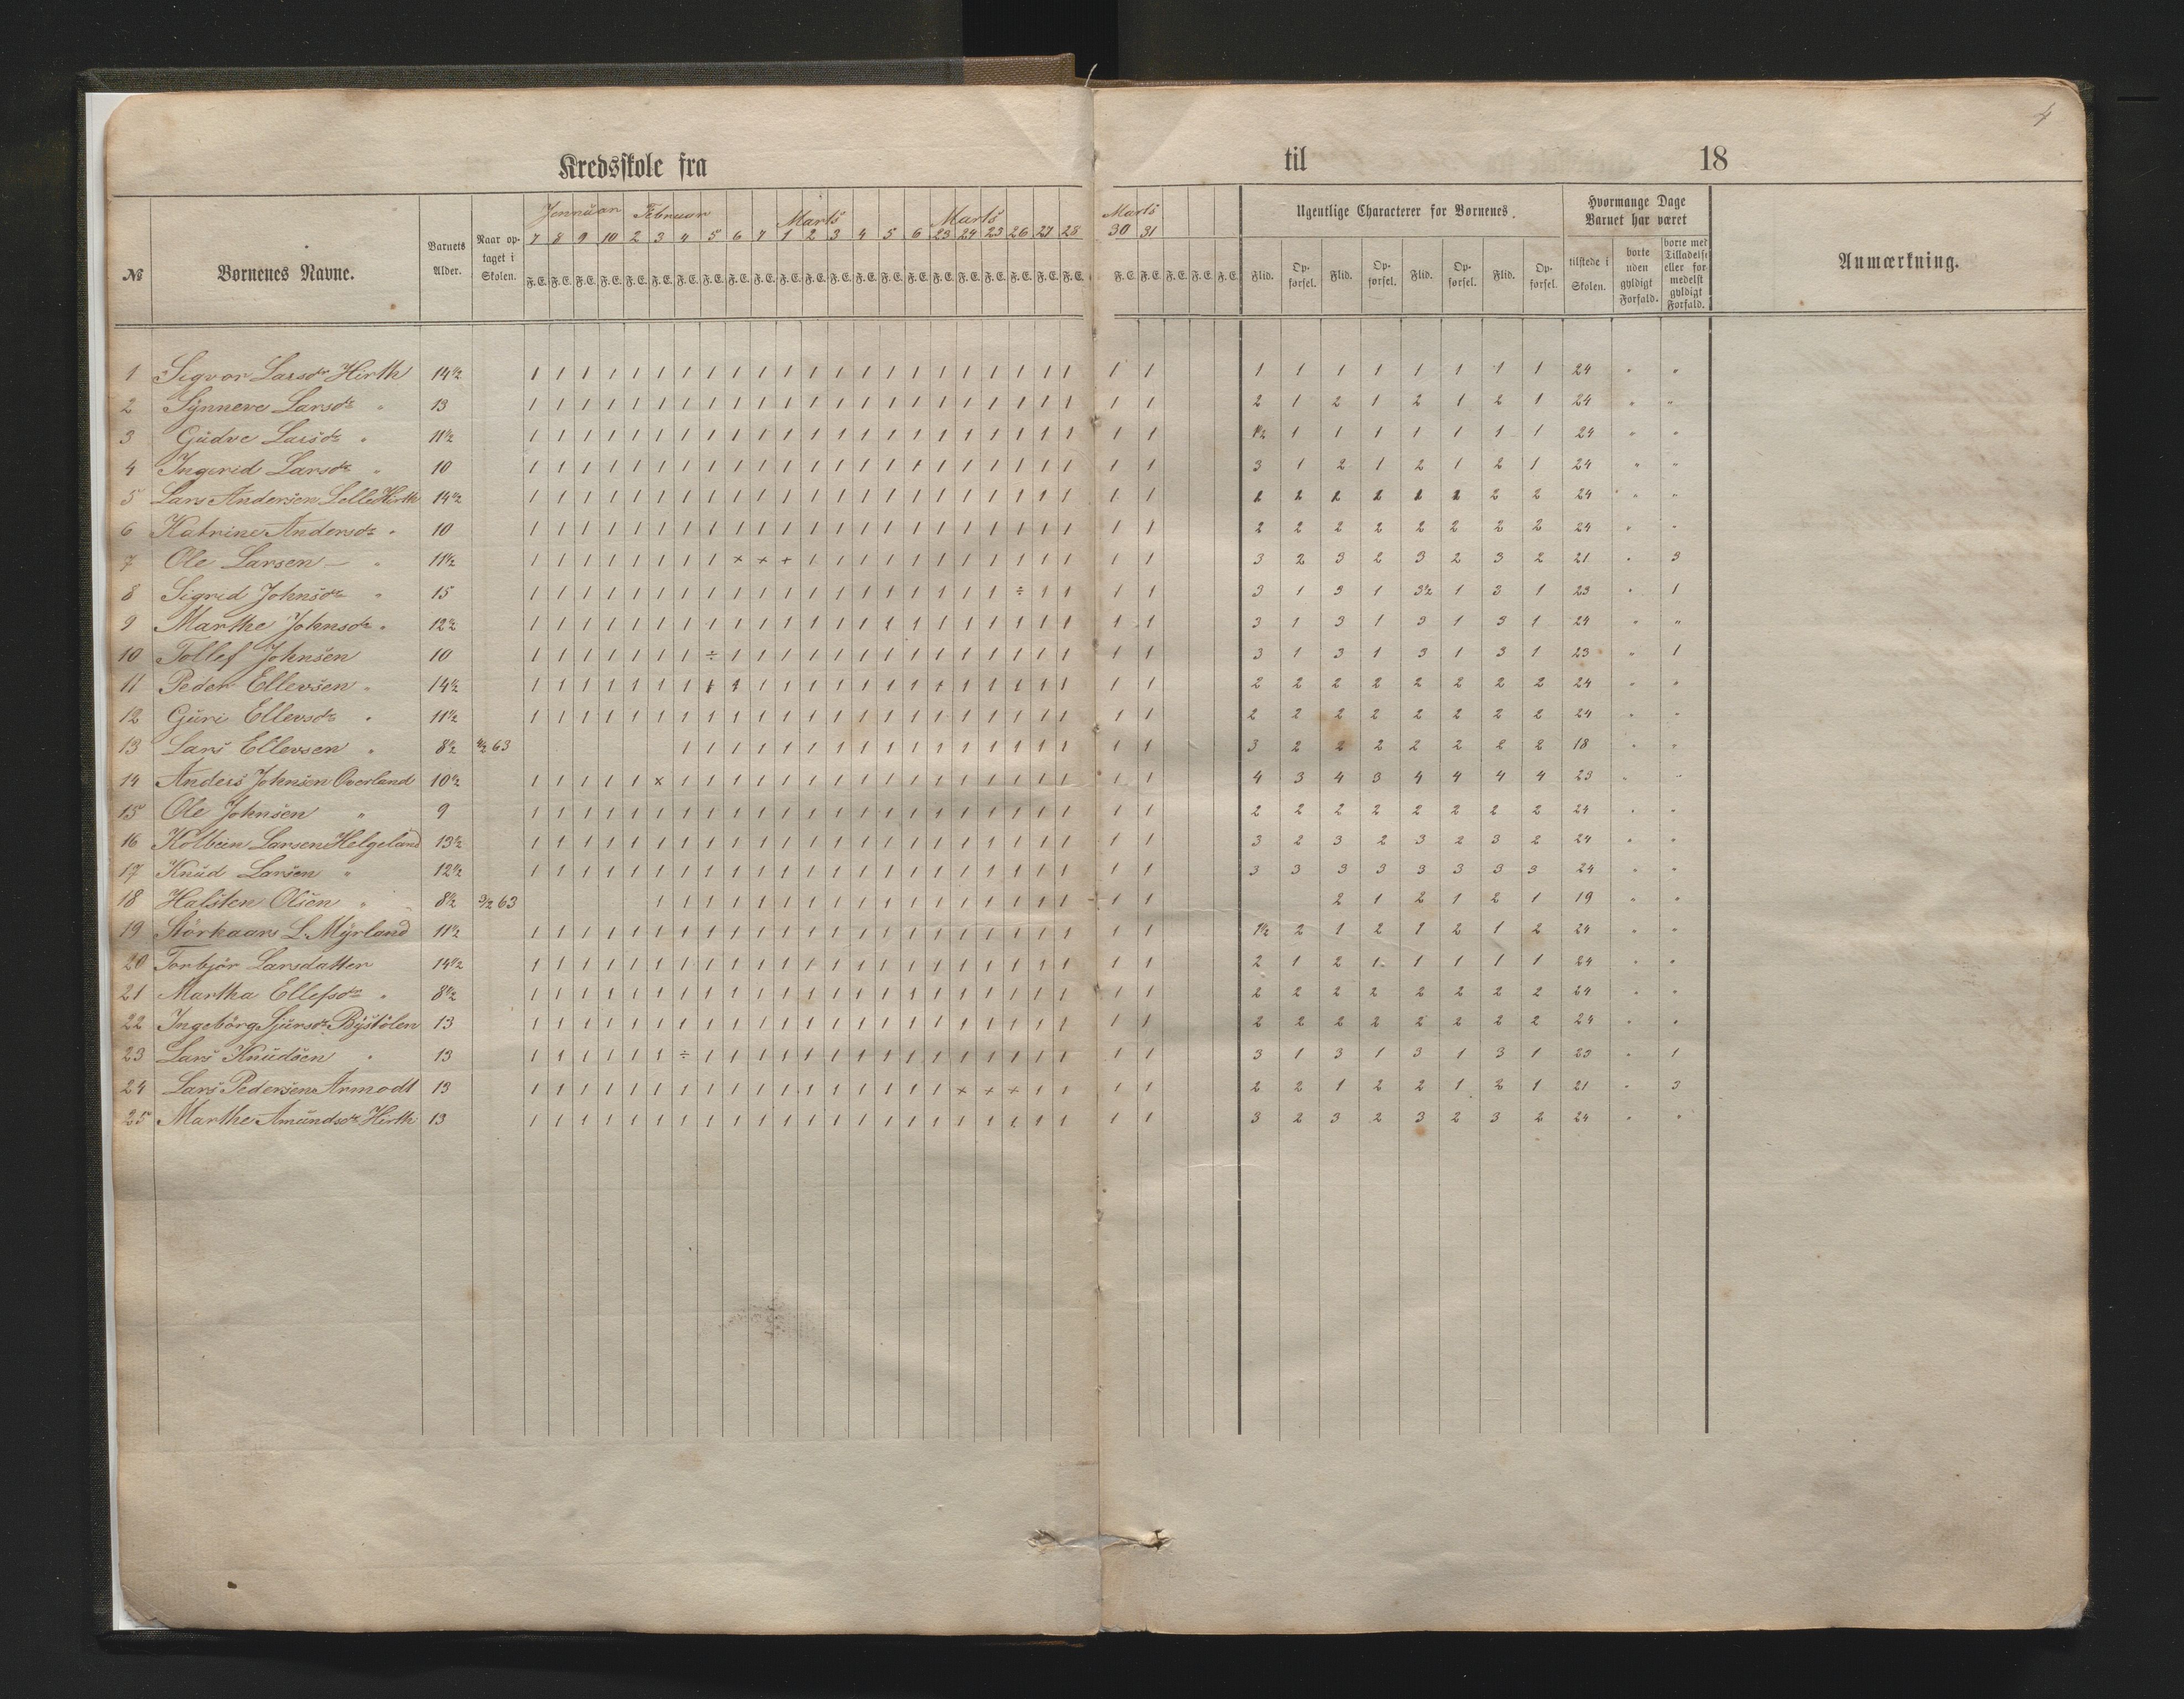 4
Kredsskole fra til 18
№ Børnenes Navne. Barnets Alder. Naar optaget i Skolen. Jennuar Februar Marts Marts Marts Ugentlige Characterer for Børnenes. Hvormange Dage Barnet har været Anmærkning.
7 8 9 10 2 3 4 5 6 7 1 2 3 4 5 6 23 24 25 26 27 28 30 31
F.E. F.E. F.E. F.E. F.E. F.E. F.E. F.E. F.E. F.E. F.E. F.E. F.E. F.E. F.E. F.E. F.E. F.E. F.E. F.E. F.E. F.E. F.E. F.E. F.E. F.E. F.E. Flid. Opførsel. Flid. Opførsel. Flid. Opførsel. Flid. Opførsel. tilstede i Skolen. borte uden gyldigt Forfald. borte med Tilladelse eller formedelst gyldigt Forfald.
1 Sigvor Larsdr Hirth 14½ 1 1 1 1 1 1 1 1 1 1 1 1 1 1 1 1 1 1 1 1 1 1 1 1 1 1 1 1 1 1 1 1 24 " "
2 Synneve Larsdr " 13 1 1 1 1 1 1 1 1 1 1 1 1 1 1 1 1 1 1 1 1 1 1 1 1 2 1 2 1 2 1 2 1 24 " "
3 Gudve Larsdr " 11½ 1 1 1 1 1 1 1 1 1 1 1 1 1 1 1 1 1 1 1 1 1 1 1 1 1½ 1 1 1 1 1 1 1 24 " "
4 Ingerid Larsdr " 10 1 1 1 1 1 1 1 1 1 1 1 1 1 1 1 1 1 1 1 1 1 1 1 1 3 1 2 1 2 1 2 1 24 " "
5 Lars Andersen LilleHirth 14½ 1 1 1 1 1 1 1 1 1 1 1 1 1 1 1 1 1 1 1 1 1 1 1 1 2 2 24 " "
6 Katrine Andersdr " 10 1 1 1 1 1 1 1 1 1 1 1 1 1 1 1 1 1 1 1 1 1 1 1 1 2 2 2 2 2 2 2 2 24 " "
7 Ole Larsen " 11½ 1 1 1 1 1 1 1 1 × × + 1 1 1 1 1 1 1 1 1 1 1 1 1 3 2 3 2 3 2 3 2 21 " 3
8 Sigrid Johnsdr " 15 1 1 1 1 1 1 1 1 1 1 1 1 1 1 1 1 1 1 1 ÷ 1 1 1 1 3 1 3 1 3½ 1 3 1 23 " 1
9 Marthe Johnsdr " 12½ 1 1 1 1 1 1 1 1 1 1 1 1 1 1 1 1 1 1 1 1 1 1 1 1 3 1 3 1 3 1 3 1 24 " "
10 Tollef Johnsen 10 1 1 1 1 1 1 1 ÷ 1 1 1 1 1 1 1 1 1 1 1 1 1 1 1 1 3 1 3 1 3 1 3 1 23 " 1
11 Peder Ellevsen " 14½ 1 1 1 1 1 1 1 1 1 1 1 1 1 1 1 1 1 1 1 1 1 1 1 1 2 2 2 2 2 2 2 2 24 " "
12 Guri Ellevsdr " 11½ 1 1 1 1 1 1 1 1 1 1 1 1 1 1 1 1 1 1 1 1 1 1 1 1 2 2 2 2 2 2 2 2 24 " "
13 Lars Ellevsen " 8½ 4/2 63 1 1 1 1 1 1 1 1 1 1 1 1 1 1 1 1 1 1 3 2 2 2 2 2 2 2 18 " "
14 Anders Johnsen Overland 10½ 1 1 1 1 1 × 1 1 1 1 1 1 1 1 1 1 1 1 1 1 1 1 1 1 4 3 4 3 4 4 4 4 23 " "
15 Ole Johnsen " 9 1 1 1 1 1 1 1 1 1 1 1 1 1 1 1 1 1 1 1 1 1 1 1 1 2 2 2 2 2 2 2 2 24 " "
16 Kolbein Larsen Helgeland 13½ 1 1 1 1 1 1 1 1 1 1 1 1 1 1 1 1 1 1 1 1 1 1 1 1 3 2 3 2 3 2 3 2 24 " "
17 Knud Larsen " 12½ 1 1 1 1 1 1 1 1 1 1 1 1 1 1 1 1 1 1 1 1 1 1 1 1 3 3 3 3 3 3 3 3 24 " "
18 Halsten Olsen " 8½ 3/2 63 1 1 1 1 1 1 1 1 1 1 1 1 1 1 1 1 1 1 1 2 1 2 1 2 1 19 " "
19 Storkaars L. Myrland 11½ 1 1 1 1 1 1 1 1 1 1 1 1 1 1 1 1 1 1 1 1 1 1 1 1 1½ 2 1 2 1 2 1 2 24 " "
20 Torbjør Larsdatter 14½ 1 1 1 1 1 1 1 1 1 1 1 1 1 1 1 1 1 1 1 1 1 1 1 1 2 1 2 1 1 1 1 1 24 " "
21 Martha Ellefsdr " 8½ 1 1 1 1 1 1 1 1 1 1 1 1 1 1 1 1 1 1 1 1 1 1 1 1 2 2 2 2 2 2 2 2 24 " "
22 Ingeborg Sjursdr Bystølen 13 1 1 1 1 1 1 1 1 1 1 1 1 1 1 1 1 1 1 1 1 1 1 1 1 2 2 2 2 2 2 2 2 24 " "
23 Lars Knudsen " 13 1 1 1 1 1 1 ÷ 1 1 1 1 1 1 1 1 1 1 1 1 1 1 1 1 1 3 1 3 1 3 1 3 1 23 " 1
24 Lars Pedersen Armodt 13 1 1 1 1 1 1 1 1 1 1 1 1 1 1 1 1 1 × × × 1 1 1 1 2 2 1 2 2 1 2 1 21 " 3
25 Marthe Amundsdr Hirth 13 1 1 1 1 1 1 1 1 1 1 1 1 1 1 1 1 1 1 1 1 1 1 1 1 3 2 3 2 3 2 3 2 24 " "